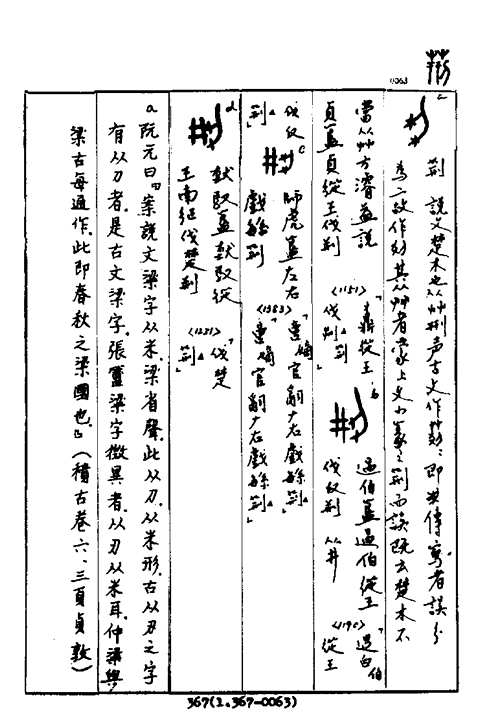 0063
荆 說文楚木也从艸刑声古文作𦮙𦮙即𠛬傳寫者誤分
為二故作𦮙其从艸者蒙上文小篆之荆而誤既云楚木不
當从艸方濬益說
<1151> 鼒從王
貞簋貞從王伐荆 伐荆「荆」
b 過伯簋過伯從王
伐反荆 从井
<1190> 「過白伯從王
伐反荆」
c 師虎簋左右
戲緐荆
<1383> 「啻嫡官𤔲𠂇右戲緐荆」
啻嫡官𤔲𠂇右戲緐荆」
d 㝬馭簋㝬馭從
王南征伐楚荆
<1231> 「伐楚
荆」
a. 阮元曰:「案說文梁字从米,梁省聲,此从刀,从米形,古从刃之字
有从刀者,是古文梁字,張簠梁字微異者,从刃从米耳,仲梁與
梁古每通作,此即春秋之梁國也。」(積古卷六、三頁貞敦)
367(1.367-0063)